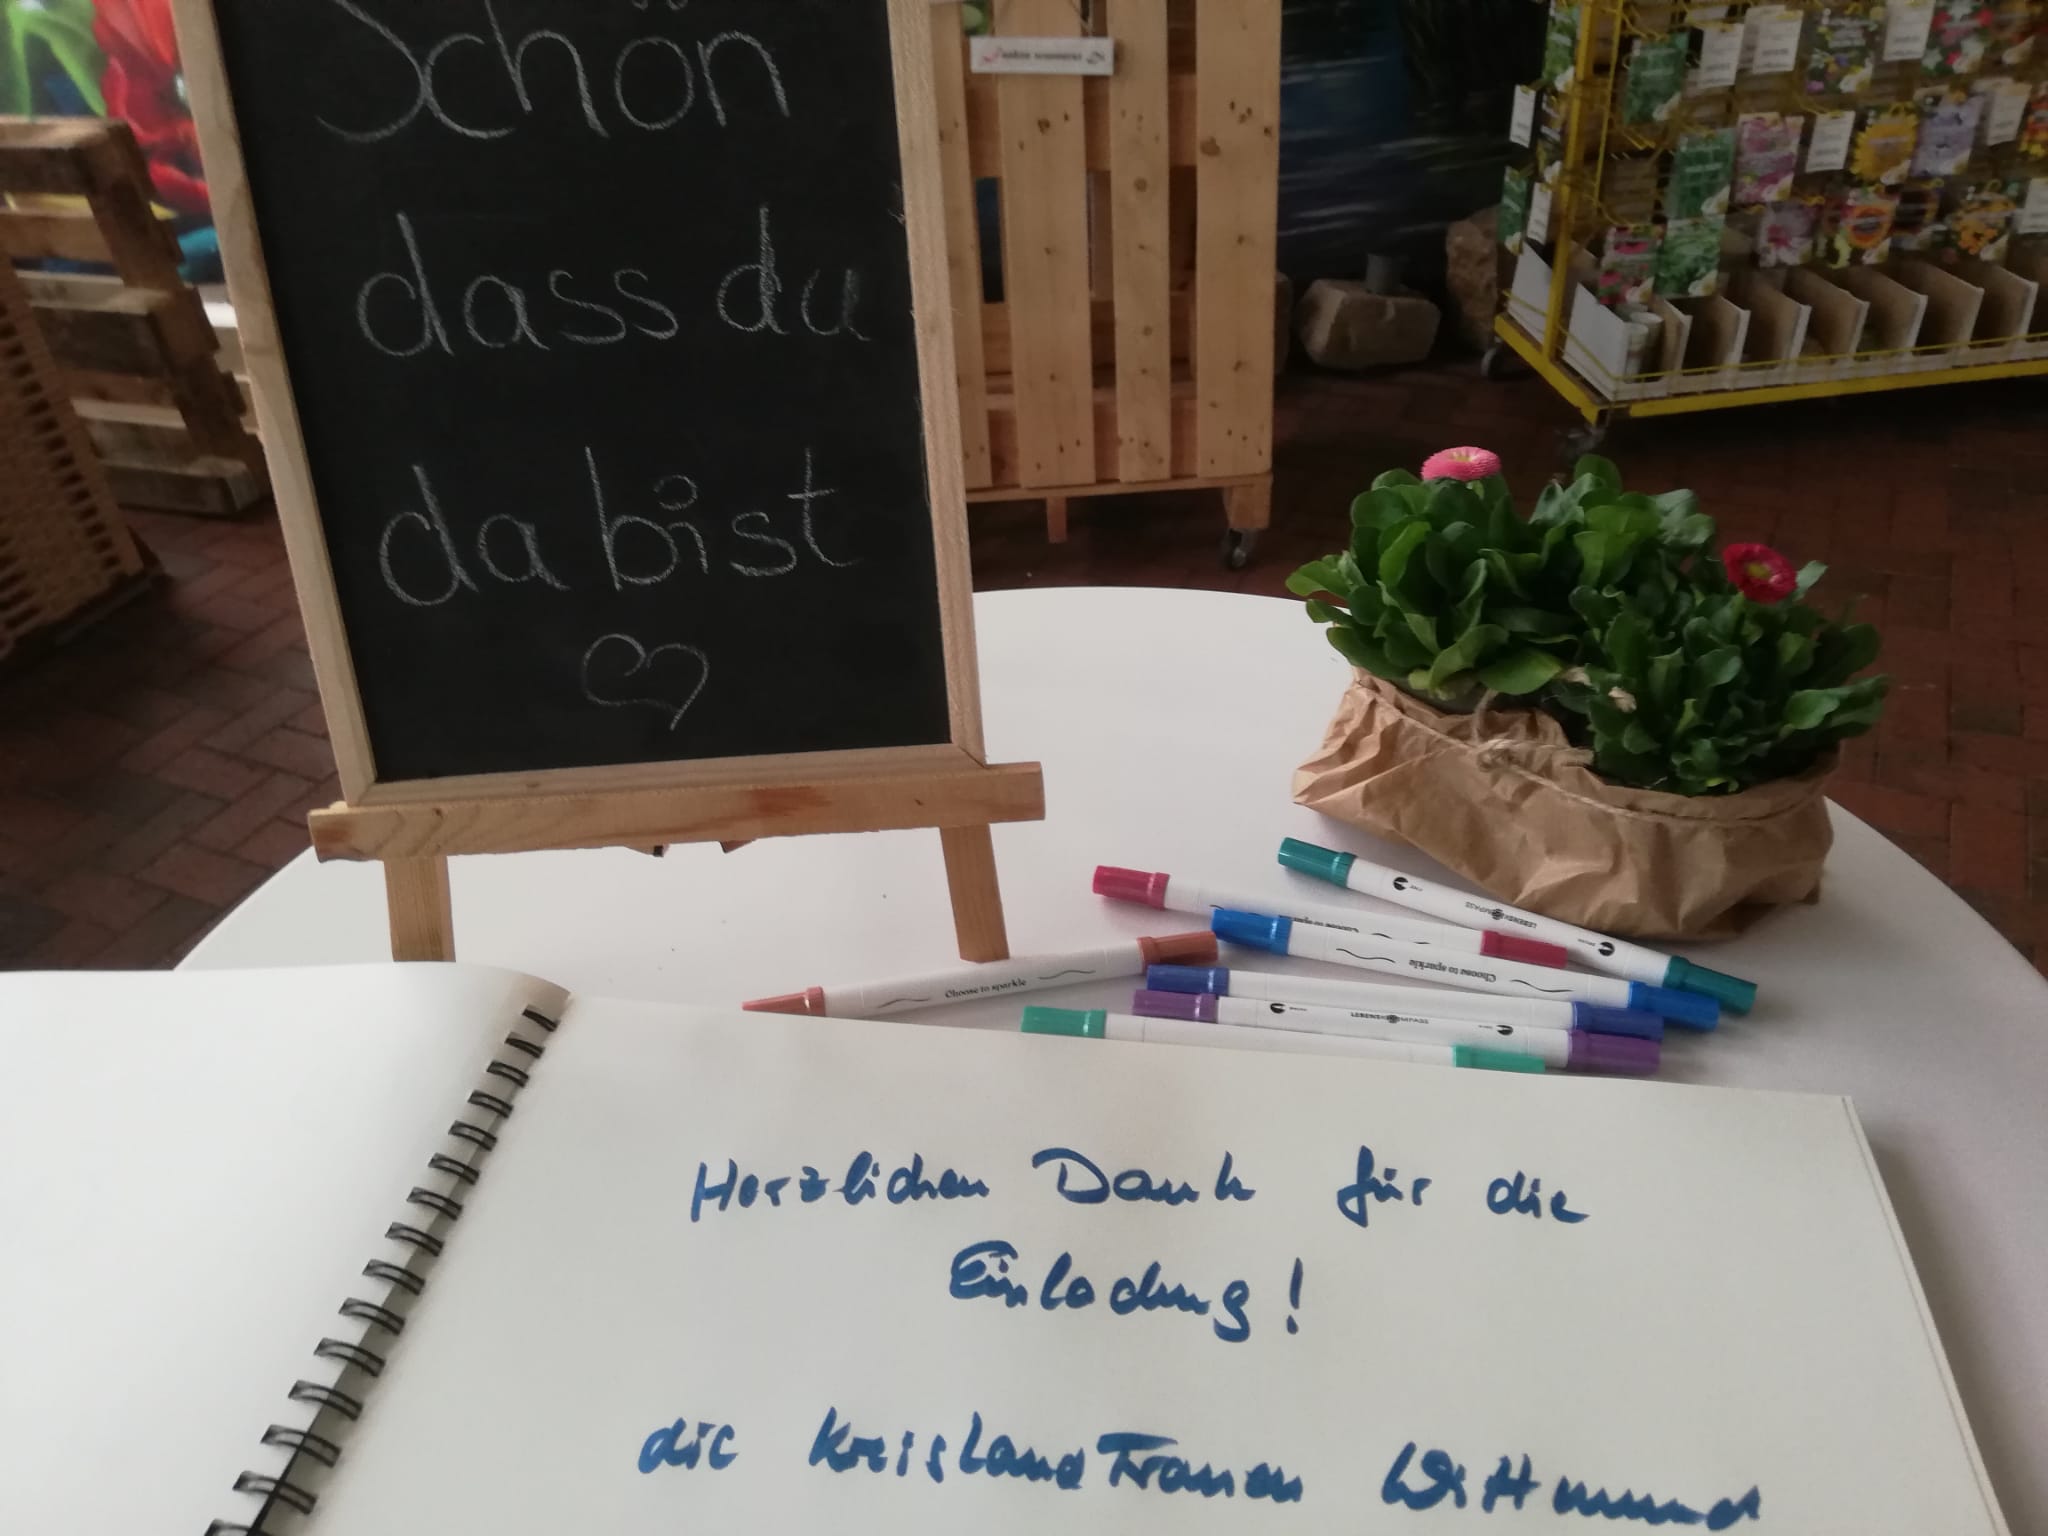 Schön
dass du
da bist
Choose to sparkle
Choose to sparkle
LEBENSKOMPASS
LEBENSKOMPASS
Herzlichen Dank für die
Einladung!
die KreisLandFrauen Wittmund